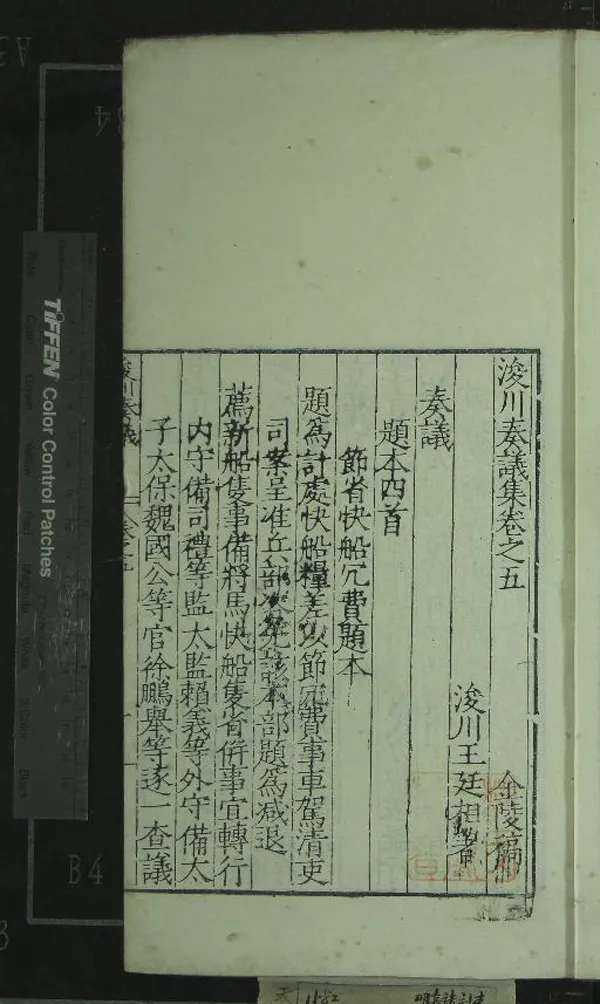 浚川奏議集卷之五
金陵稿
浚川王廷相著
奏議
題本四首
節省快船冗費題本
題爲計處快船糧差以節冗費事車駕清吏
司案呈准兵部咨該本部題爲減退
薦新船隻事備將馬快船隻省併事宜轉行
內守備司禮等監太監賴義等外守備太
子太保魏國公等官徐鵬舉等逐一查議
浚川奏議
卷之五
TIFFEN Color Control Patches
B4